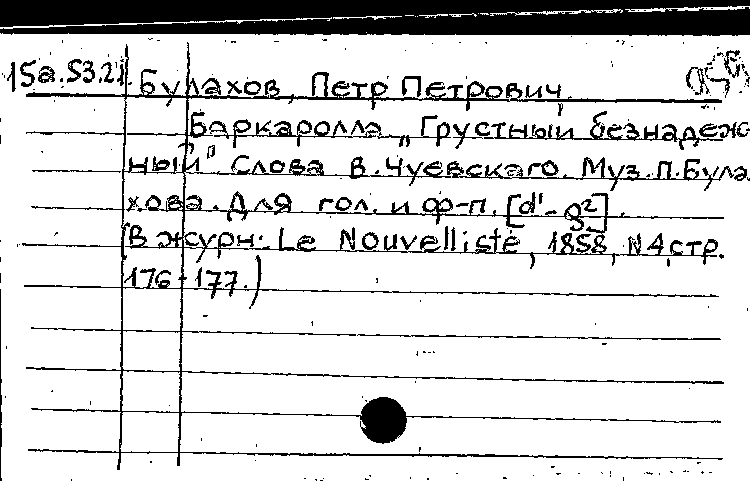 15а.53.21. Булахов, Петр Петрович.
Баркаролла „Грустный безнадеж
ный" Слова В. Чуевскаго. Муз. П. Була
хова. Для гол. и ф-п. [d'-g²].
(В журн: Le Nouvelliste, 1858, N4, стр.
176-177.)